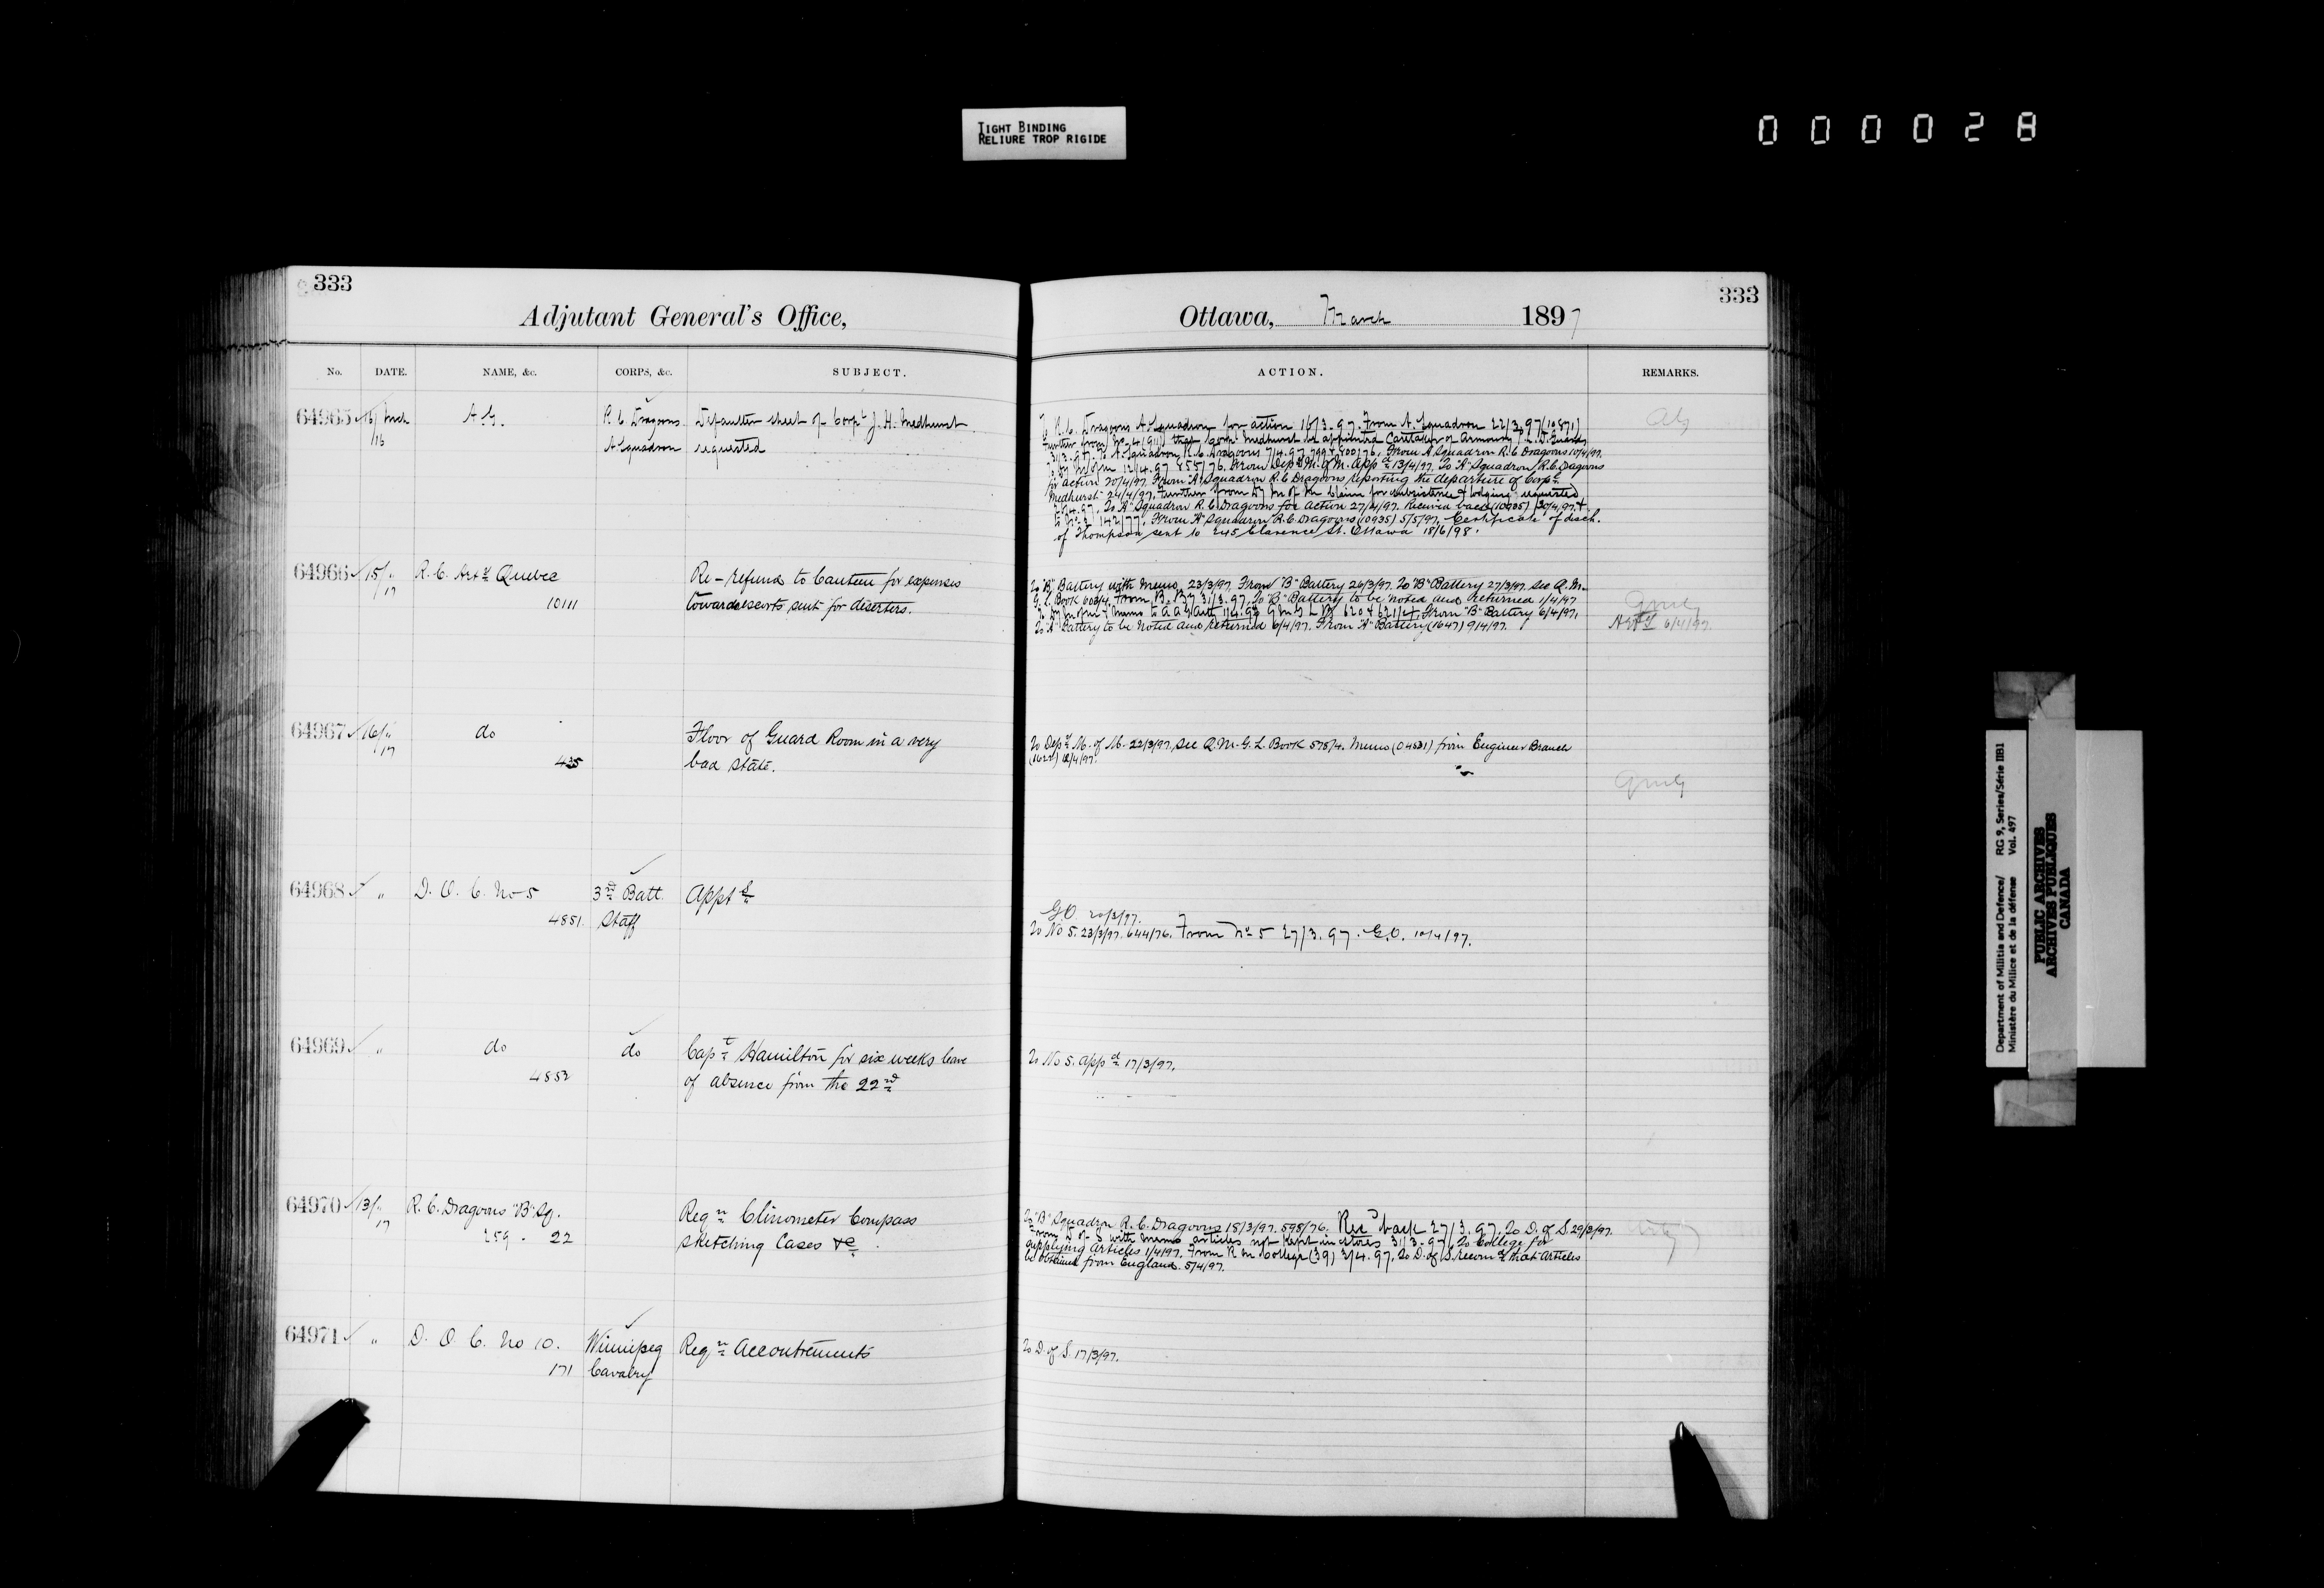 TIGHT BINDING
RELIURE TROP RIGIDE
000028
333
Adjutant General's Office,
No. DATE. NAME, &c. CORPS, &c. SUBJECT.
64965 16/ Mch A.G. R.C. Dragoons Defaulter sheet of Corpl J. H. Medhurst
16 A Squadron requested
64966 15/ " R.C. Arty Quebec Re-refund to Canteen for expenses
17 10111 towards escorts sent for deserters.
64967 16/ " do Floor of Guard Room in a very
17 435 bad state.
64968 " D.O.C. No 5 3rd Batt. Appts
4851. Staff
64969 " do do Capt Hamilton for six weeks leave
4852 of absence from the 22nd
64970 13/ " R.C. Dragoons "B" Sq. Reqn Clinometer Compass
17 259 - 22 Sketching Cases &c.
64971 " D.O.C. No 10. Winnipeg Reqn Accoutrements
171 Cavalry
333
Ottawa, March 1897
ACTION. REMARKS.
To R.C. Dragoons A Squadron for action 16/3.97. From A. Squadron 22/3.97 (10871)
further from No 4 that Corpl Medhurst be appointed Caretaker of Armoury
31/3.97. To A. Squadron R.C. Dragoons 7/4.97 799 & 800/76. From A Squadron R.C. Dragoons 10/4/97.
12/4.97 855/76. From Dep M. of M. Appd 13/4/97. To "A" Squadron R.C. Dragoons
for action 20/4/97. From "A" Squadron R.C. Dragoons reporting the departure of Corpl
Medhurst 24/4/97. Further from claim for subsistence & lodging requested
To "A" Squadron R.C. Dragoons for action 27/4/97. Received back (10935) 30/4.97.
142/77. From "A" Squadron R.C. Dragoons (10935) 5/5/97. Certificate of disch.
of Thompson sent to 245 Clarence St. Ottawa 18/6/98.
To "B" Battery with memo, 23/3/97. From "B" Battery 26/3/97. To "B" Battery 27/3/97. See Q.M.
G. L. Book 603/4. From B. By 31/3.97. To "B" Battery to be noted and returned 1/4/97
620 & 621/4. From "B" Battery 6/4/97.
To "A" Battery to be noted and returned 6/4/97. From "A" Battery (1647) 9/4/97.
Qmg
Arty 6/4/97.
To Dep M. of M. 22/3/97. See Q.M.G. L. Book 578/4. Memo (04531) from Engineer Branch
Qmg
G.O. 20/3/97.
To No 5. 23/3/97. 644/76. From No 5 27/3.97. G.O. 10/4/97.
To No 5. Appd 17/3/97.
To "B" Squadron R.C. Dragoons 18/3/97. 598/76. Recd back 27/3.97. To D. of S. 29/3/97.
From D of S with memo articles not kept in stores 31/3.97. To College for
supplying articles 1/4/97. From R M College (39) 3/4.97. To D. of S. recomd that articles
be obtained from England. 5/4/97.
To D. of S. 17/3/97.
Department of Militia and Defence/ RG 9, Series/Série IIB1
Ministère du Milice et de la défense Vol. 497
PUBLIC ARCHIVES
ARCHIVES PUBLIQUES
CANADA